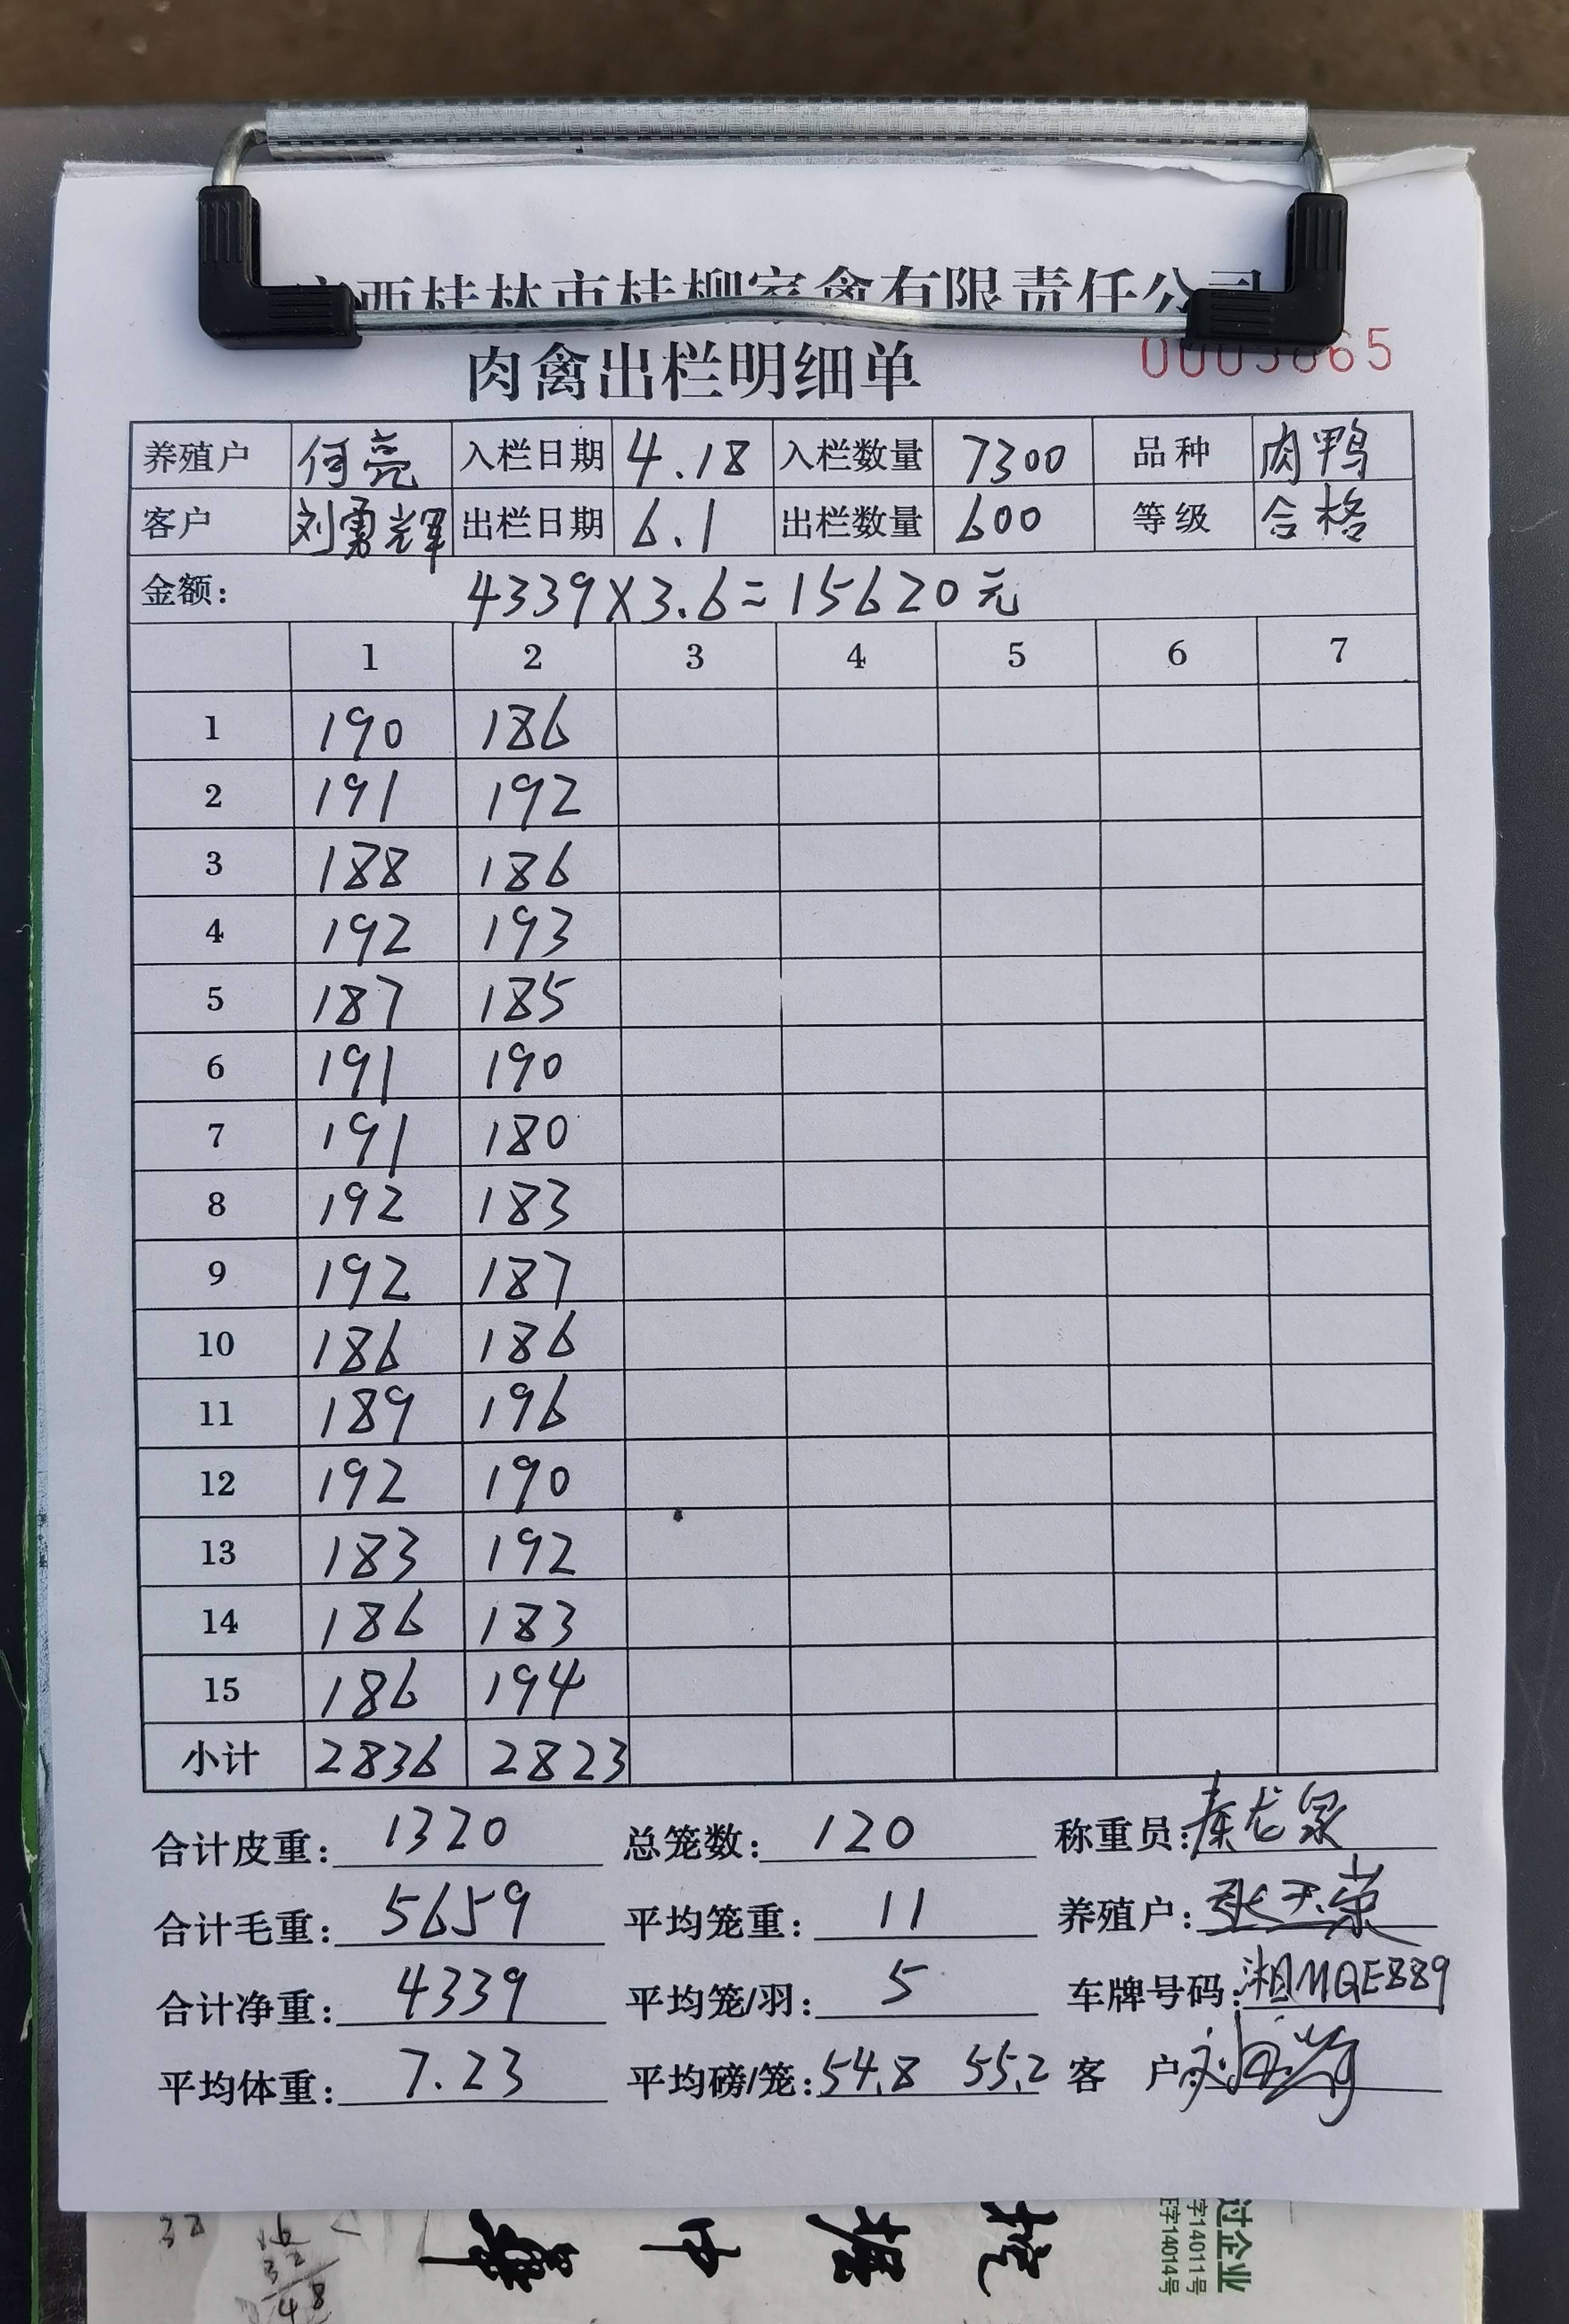 广西桂林市桂柳家禽有限责任公司
肉禽出栏明细单 0005865
养殖户 何亮 入栏日期 4.18 入栏数量 7300 品种 肉鸭
客户 刘勇辉 出栏日期 6.1 出栏数量 600 等级 合格
金额: 4339×3.6=15620元
1 2 3 4 5 6 7
1 190 186
2 191 192
3 188 186
4 192 193
5 187 185
6 191 190
7 191 180
8 192 183
9 192 187
10 186 186
11 189 196
12 192 190
13 183 192
14 186 183
15 186 194
小计 2836 2823
合计皮重: 1320 总笼数: 120 称重员: 秦龙泉
合计毛重: 5659 平均笼重: 11 养殖户:
合计净重: 4339 平均笼/羽: 5 车牌号码: 湘MQE889
平均体重: 7.23 平均磅/笼: 54.8 55.2 客 户:
过企业
字14011号
证字14014号
32
16
32
48